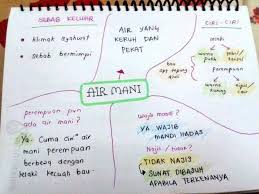 SEBAB KELUAR
• klimak syahwat
• sebab bermimpi
AIR YANG
KERUH DAN
PEKAT
CIRI-CIRI
warna
putih
bau
perempuan
warna
AIR MANI
perempuan pun
ada air mani?
Ya. Cuma ciri² air
mani perempuan
berbeza dengan
lelaki kecuali bau
wajib mandi?
YA. WAJIB
MANDI HADAS
Najis / tidak?
TIDAK NAJIS
SUNAT DIBASUH
APABILA TERKENANYA